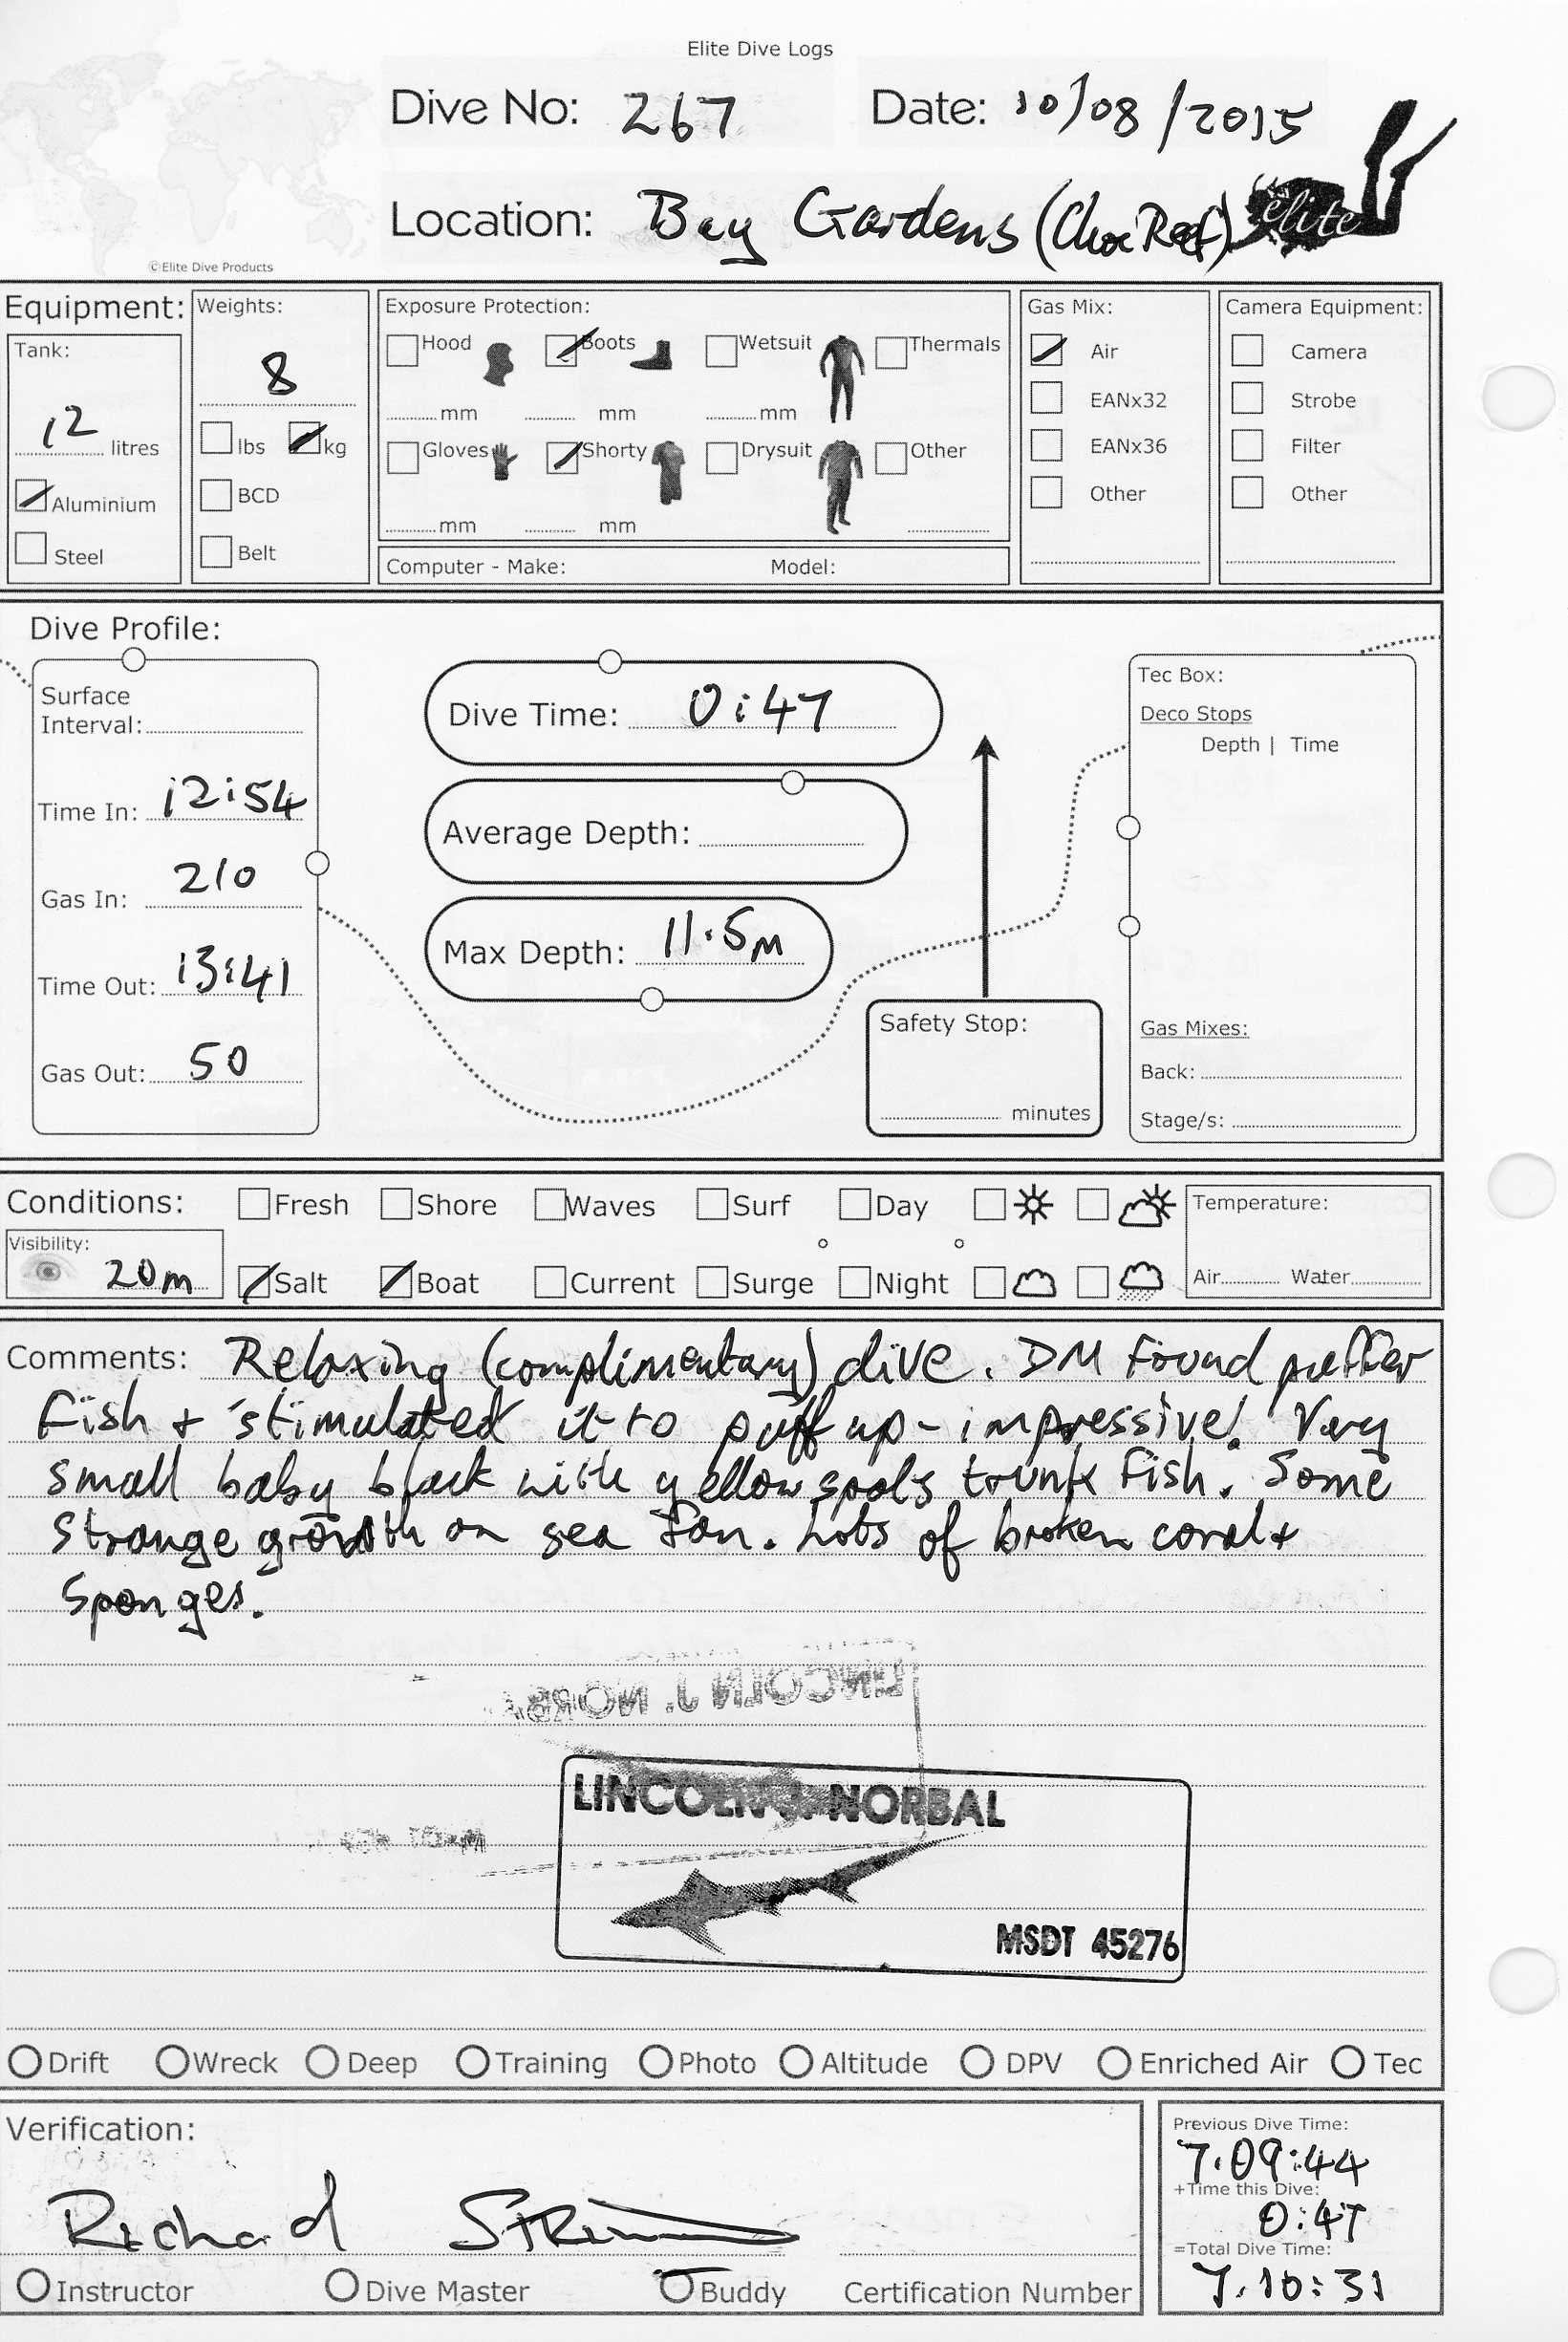 Elite Dive Logs
Dive No: 267 Date: 10/08/2015
Location: Bay Gardens (Choc Reef) elite
©Elite Dive Products
Equipment:
Tank:
12 litres
Aluminium
Steel
Weights:
8
lbs kg
BCD
Belt
Exposure Protection:
Hood Boots Wetsuit Thermals
mm mm mm
Gloves Shorty Drysuit Other
mm mm
Computer - Make: Model:
Gas Mix:
Air
EANx32
EANx36
Other
Camera Equipment:
Camera
Strobe
Filter
Other
Dive Profile:
Surface
Interval:
Time In: 12:54
Gas In: 210
Time Out: 13:41
Gas Out: 50
Dive Time: 0:47
Average Depth:
Max Depth: 11.5m
Safety Stop:
minutes
Tec Box:
Deco Stops
Depth | Time
Gas Mixes:
Back:
Stage/s:
Conditions: Fresh Shore Waves Surf Day
Visibility: 20m
Salt Boat Current Surge Night
Temperature:
Air Water
Comments: Relaxing (complimentary) dive. DM found puffer
fish + 'stimulated' it to puff up - impressive! Very
small baby black with yellow spots trunk fish. Some
strange growth on sea fan. Lots of broken coral +
sponges.
LINCOLN J. NORBAL
MSDT 45276
Drift Wreck Deep Training Photo Altitude DPV Enriched Air Tec
Verification:
Richard
Instructor Dive Master Buddy Certification Number
Previous Dive Time:
7.09:44
+Time this Dive:
0:47
=Total Dive Time:
7.10:31